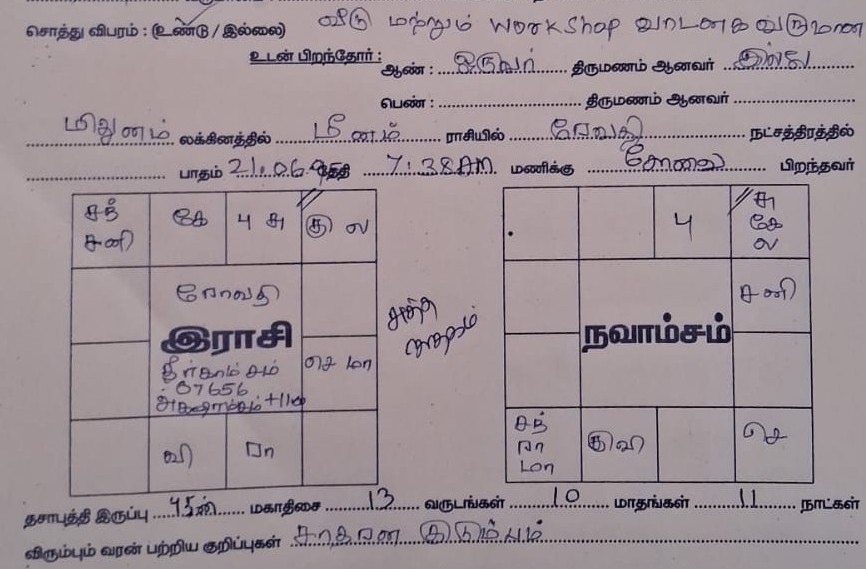 சொத்து விபரம் : (உண்டு / இல்லை) வீடு மற்றும் workshop வாடகை வருமான
உடன் பிறந்தோர் : ஆண் : ஒருவர் திருமணம் ஆனவர் இல்லை
பெண் : திருமணம் ஆனவர்
மிதுனம் லக்கினத்தில் மீனம் ராசியில் ரேவதி நட்சத்திரத்தில்
பாதம் 21.06.95 தேதி 7:38AM மணிக்கு கோவை பிறந்தவர்
சந் சனி
கே
பு சு
கு ல
ரேவதி
இராசி
தீர்காம்சம்
07656
அக்ஷாம்சம் +110
செ மா
வி
ரா
சுத்த ஜாதகம்
பு
சு கே ல
சனி
நவாம்சம்
சந் ரா மா
கு வி
செ
தசாபுத்தி இருப்பு மகாதிசை 13 வருடங்கள் 10 மாதங்கள் 11 நாட்கள்
விரும்பும் வரன் பற்றிய குறிப்புகள் சாதாரண குடும்பம்